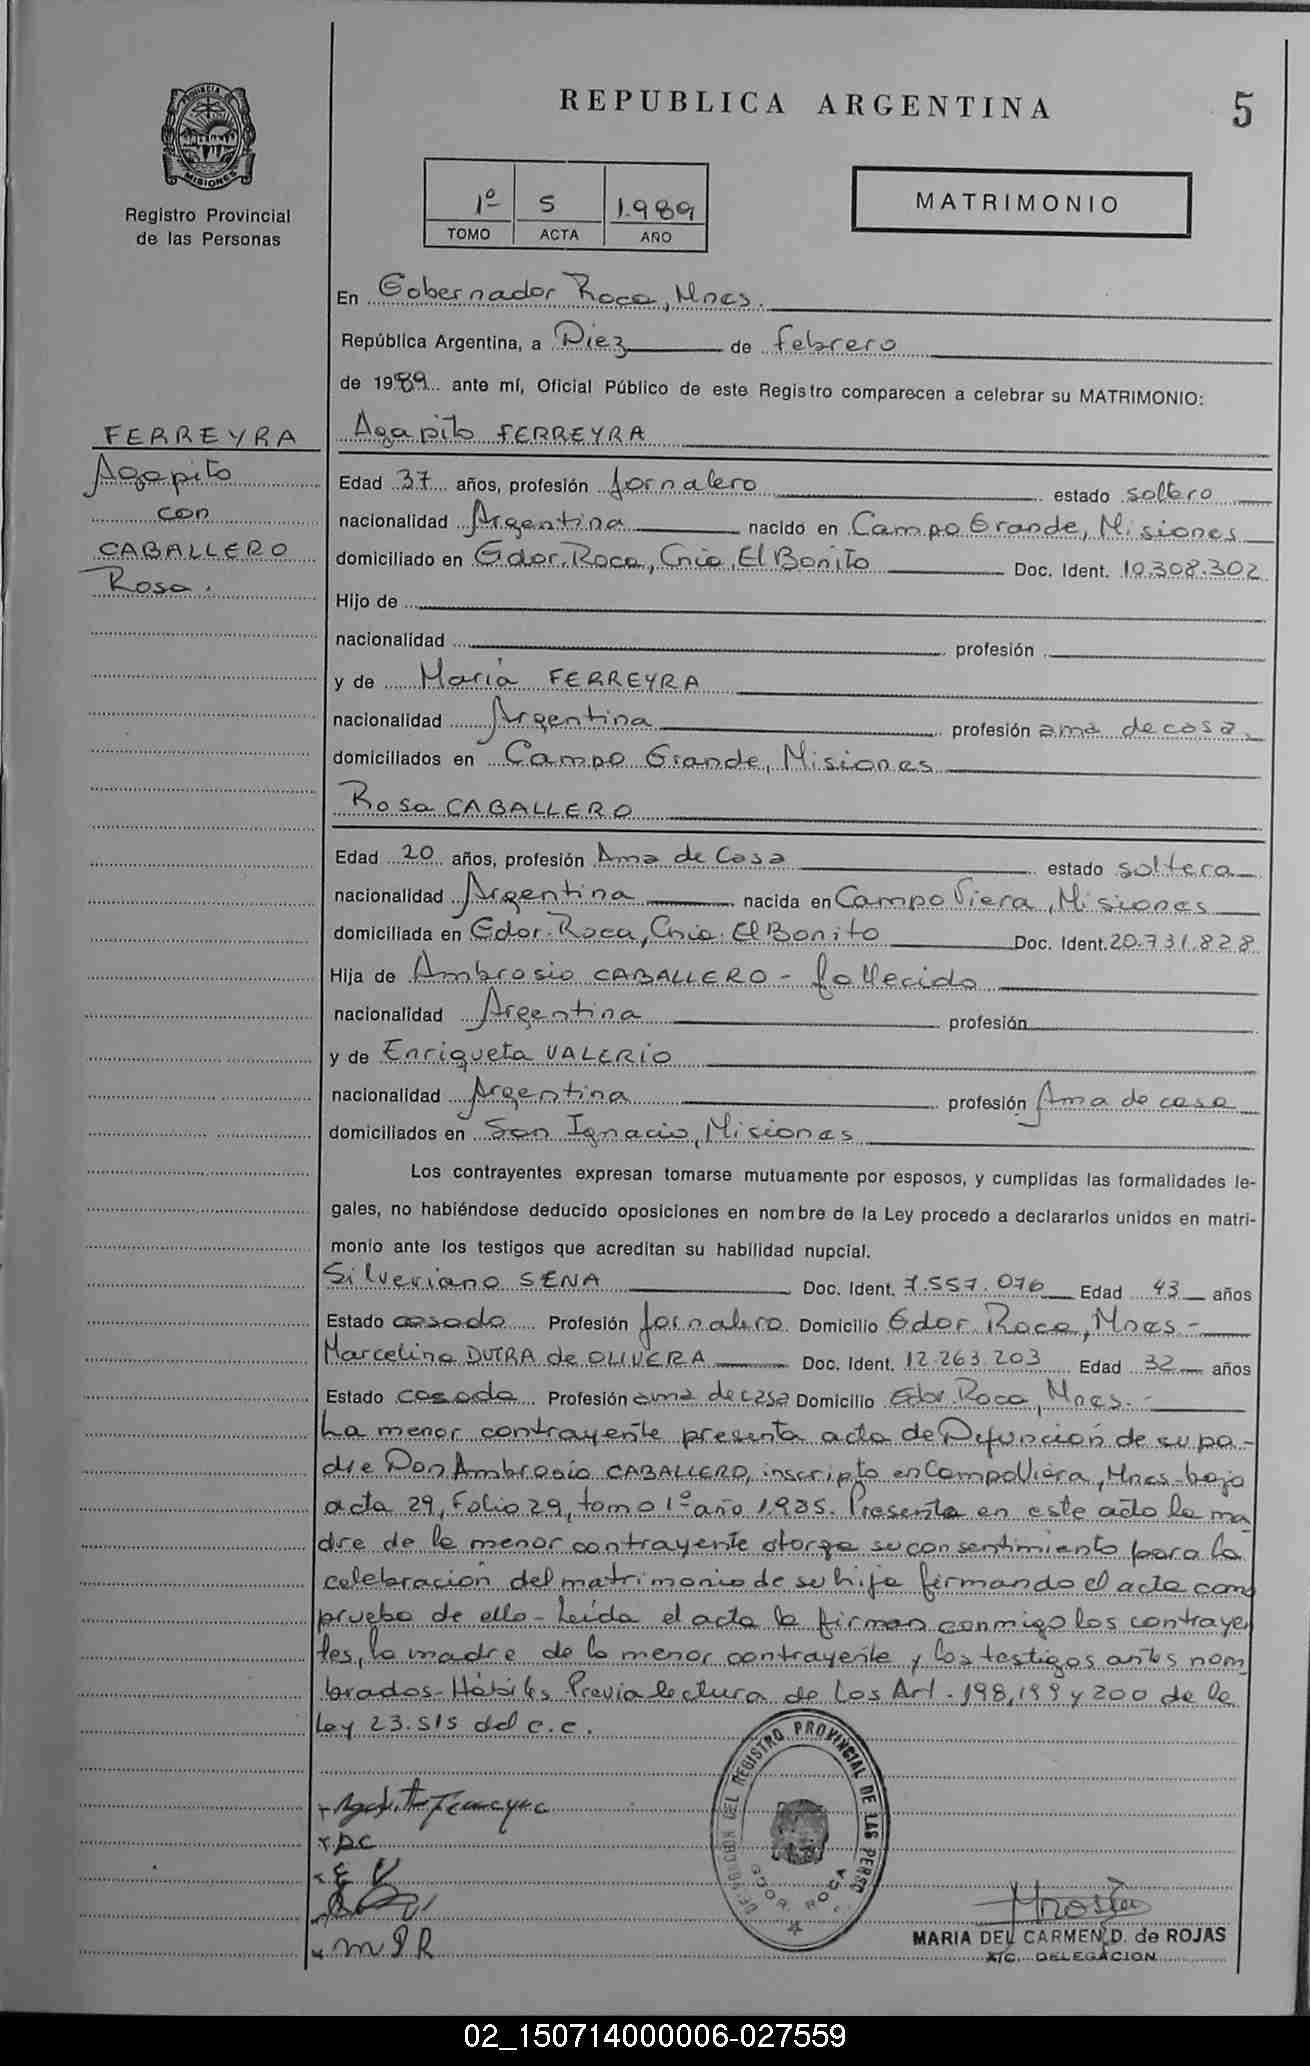 REPUBLICA ARGENTINA
5
PROVINCIA DE
MISIONES
Registro Provincial
de las Personas
1º 5 1.989
TOMO ACTA AÑO
MATRIMONIO
En Gobernador Roca, Mnes.
República Argentina, a Diez de febrero
de 1989 ante mí, Oficial Público de este Registro comparecen a celebrar su MATRIMONIO:
FERREYRA
Agapito
con
CABALLERO
Rosa.
Agapito FERREYRA
Edad 37 años, profesión Jornalero estado soltero
nacionalidad Argentina nacido en Campo Grande, Misiones
domiciliado en Gdor. Roca, Cnia. El Bonito Doc. Ident. 10.308.302
Hijo de
nacionalidad profesión
y de María FERREYRA
nacionalidad Argentina profesión ama de casa
domiciliados en Campo Grande, Misiones
Rosa CABALLERO
Edad 20 años, profesión Ama de Casa estado soltera
nacionalidad Argentina nacida en Campo Viera, Misiones
domiciliada en Gdor. Roca, Cnia. El Bonito Doc. Ident. 20.731.828
Hija de Ambrosio CABALLERO - fallecido
nacionalidad Argentina profesión
y de Enriqueta VALERIO
nacionalidad Argentina profesión Ama de casa
domiciliados en San Ignacio, Misiones
Los contrayentes expresan tomarse mutuamente por esposos, y cumplidas las formalidades le-
gales, no habiéndose deducido oposiciones en nombre de la Ley procedo a declararlos unidos en matri-
monio ante los testigos que acreditan su habilidad nupcial.
Silveriano SENA Doc. Ident. 7.557.076 Edad 43 años
Estado casado Profesión Jornalero Domicilio Gdor. Roca, Mnes-
Marcelina DUTRA de OLIVERA Doc. Ident. 12.263.203 Edad 32 años
Estado casada Profesión ama de casa Domicilio Gdor. Roca, Mnes.-
La menor contrayente presenta acta de Defunción de su pa-
dre Don Ambrosio CABALLERO, inscripto en Campo Viera, Mnes- bajo
acta 29, Folio 29, tomo 1º año 1.985. Presente en este acto la ma
dre de la menor contrayente otorga su consentimiento para la
celebración del matrimonio de su hija firmando el acta como
prueba de ello- Leída el acta la firman conmigo los contrayen
tes, la madre de la menor contrayente y los testigos antes nom
brados- Hábiles Previa lectura de los Art. 198, 199 y 200 de la
Ley 23.515 del C.C.
Agapito Ferreyra
E V
DELEGACION DEL REGISTRO PROVINCIAL DE LAS PERSO
GDOR. ROCA
MARIA DEL CARMEN D. de ROJAS
A/C. DELEGACION
02_150714000006-027559